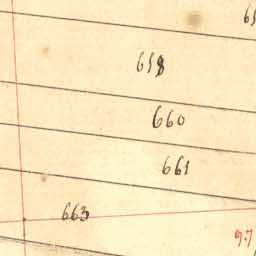 658
660
661
663
97